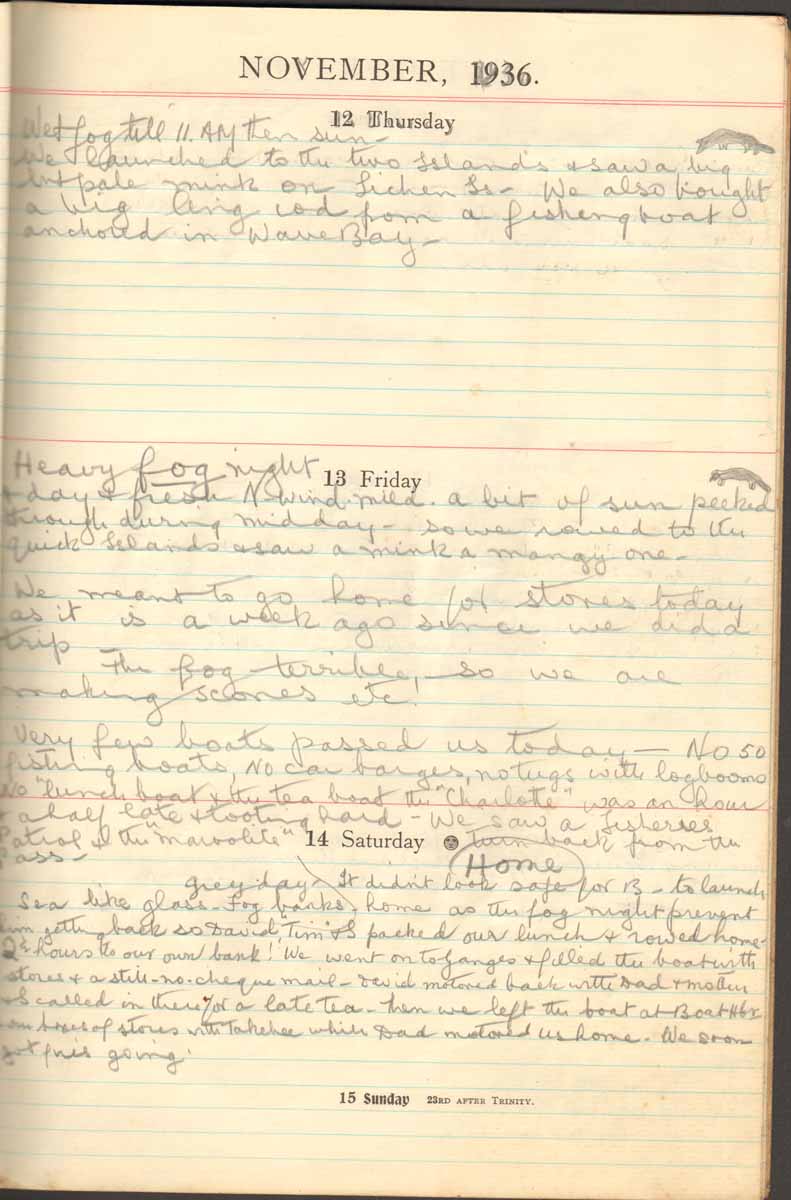 NOVEMBER, 1936.
12 Thursday
Wet fog till 11. AM then sun -
We launched to the two Islands & saw a big
pale mink on Lichen Is - We also bought
a big ling cod from a fishing boat
anchored in Wave Bay -
Heavy fog night
13 Friday
& day & fresh N. wind. mild. a bit of sun peeked
through during midday - so we rowed to the
quick Islands & saw a mink a mangy one -
We meant to go home for stores today
as it is a week ago since we did a
trip
The fog terrible, - so we are
making scones etc!
Very few boats passed us today — No 50
fishing boats, No car barges, no tugs with logbooms
No "lunch boat & the tea boat the "Charlotte" was an hour
& a half late & tooting hard - We saw a fisheries
Patrol & the
14 Saturday
turn back from the
Pass -
Home
grey day - It didn't look safe for B - to launch
Sea like glass - Fog banks, home as the fog might prevent
him getting back so David "Tim" & I packed our lunch & rowed home -
2½ hours to our own bank! We went on to Ganges & filled the boat with
stores & a still-no-cheque mail - David motored back with Dad & mother
& I called in there for a late tea - then we left the boat at Boat Hbr
our boxes of stores with while Dad motored us home - We soon
got fires going
15 Sunday 23RD AFTER TRINITY.